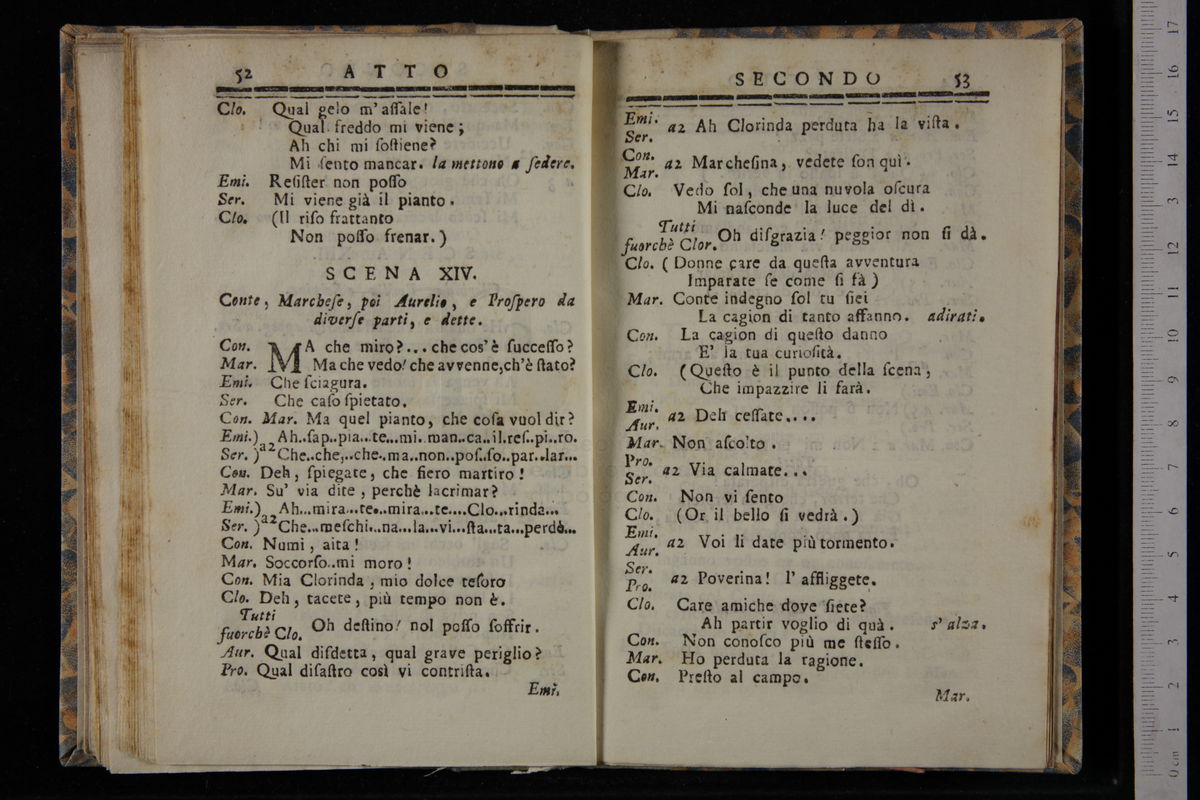 52 ATTO
Clo. Qual gelo m' aſſale!
Qual freddo mi viene;
Ah chi mi ſoſtiene?
Mi ſento mancar. la mettono a ſedere.
Emi. Reſiſter non poſſo
Ser. Mi viene già il pianto.
Clo. (Il riſo frattanto
Non poſſo frenar.)
SCENA XIV.
Conte, Marcheſe, poi Aurelio, e Proſpero da
diverſe parti, e dette.
Con. MA che miro?... che cos' è ſucceſſo?
Mar. Ma che vedo! che avvenne, ch' è ſtato?
Emi. Che ſciagura.
Ser. Che caſo ſpietato.
Con. Mar. Ma quel pianto, che coſa vuol dir?
Emi.) a2 Ah..ſap..pia...te...mi. man..ca..il.reſ..pi..ro.
Ser. ) Che..che,..che..ma..non..poſ..ſo..par..lar...
Con. Deh, ſpiegate, che fiero martiro!
Mar. Su' via dite, perchè lacrimar?
Emi.) a2 Ah...mira...te...mira...te....Clo...rinda...
Ser. ) Che...meſchi...na...la...vi...ſta...ta...perdè...
Con. Numi, aita!
Mar. Soccorſo..mi moro!
Con. Mia Clorinda, mio dolce teſoro
Clo. Deh, tacete, più tempo non è.
Tutti
fuorchè Clo. Oh deſtino! nol poſſo ſoffrir.
Aur. Qual diſdetta, qual grave periglio?
Pro. Qual diſaſtro così vi contriſta.
Emi.
SECONDO 53
Emi.
Ser. a2 Ah Clorinda perduta ha la viſta.
Con.
Mar. a2 Marcheſina, vedete ſon quì.
Clo. Vedo ſol, che una nuvola oſcura
Mi naſconde la luce del dì.
Tutti
fuorchè Clor. Oh diſgrazia! peggior non ſi dà.
Clo. (Donne care da queſta avventura
Imparate ſe come ſi fà)
Mar. Conte indegno ſol tu ſiei
La cagion di tanto affanno. adirati.
Con. La cagion di queſto danno
E' la tua curioſità.
Clo. (Queſto è il punto della ſcena,
Che impazzire li farà.
Emi.
Aur. a2 Deh ceſſate....
Mar. Non aſcolto.
Pro.
Ser. a2 Via calmate...
Con. Non vi ſento
Clo. (Or il bello ſi vedrà.)
Emi.
Aur. a2 Voi li date più tormento.
Ser.
Pro. a2 Poverina! l' affliggete.
Clo. Care amiche dove ſiete?
Ah partir voglio di quà. s' alza.
Con. Non conoſco più me ſteſſo.
Mar. Ho perduta la ragione.
Con. Preſto al campo.
Mar.
0 cm 1 2 3 4 5 6 7 8 9 10 11 12 13 14 15 16 17